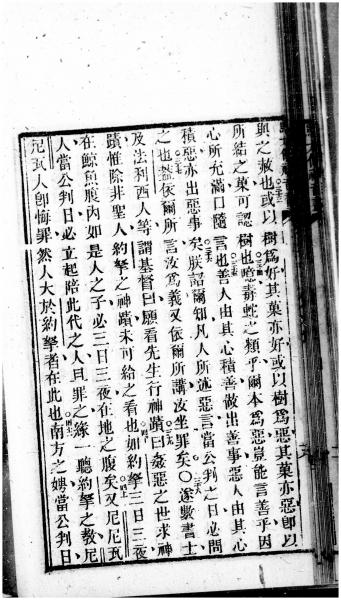 與之赦也或以樹爲好其菓亦好或以樹爲惡其菓亦惡卽以
所結之菓可認樹也噫毒蛇之類乎爾本爲惡豈能言善乎因
心所充滿口隨言也善人由其心積善做出善事惡人由其心
積惡亦出惡事矣朕詔爾知凡人所述惡言當公判之日必問
之也蓋依爾所言汝爲義又依爾所講汝坐罪矣○遂數書士
及法利西人等謂基督曰願看先生行神蹟曰姦惡之世求神
蹟惟除非聖人約拏之神蹟未可給之看也如約拏三日三夜
在鯨魚腹內如是人之子必三日三夜在地之腹矣又尼尼瓦
人當公判日必立起陪此代之人且罪之緣一聽約拏之教尼
尼瓦人卽悔罪然人大於約拏者在此也南方之娉當公判日